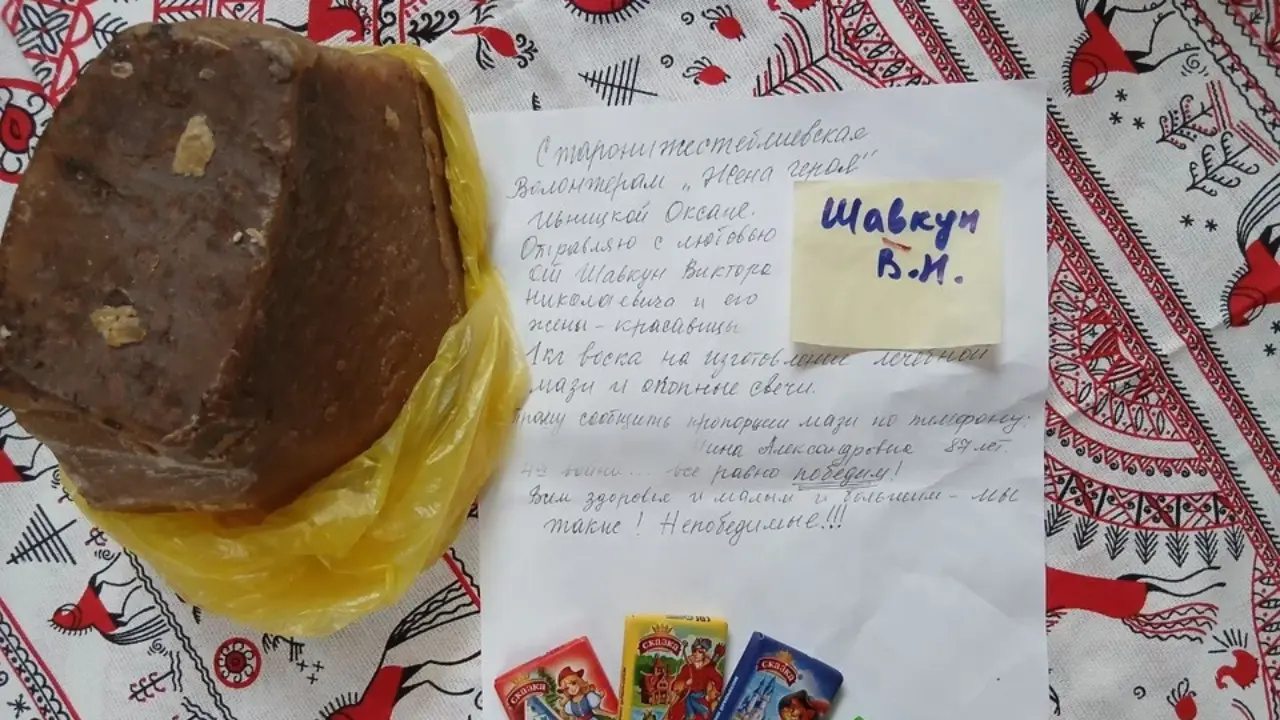 Старонижестеблиевская
Волонтерам „Жена героя"
Ильницкой Оксане.
Отправляю с любовью
от Шавкун Виктора
Николаевича и его
жены - красавицы
1 кг воска на изготовление лечебной
мази и окопные свечи.
Прошу сообщить пропорции мази по телефону:
Нина Александровна 87 лет.
война... все равно победим!
Вам здоровья и малым и большим - мы
такие! Непобедимые!!!
Шавкун
В.Н.
СКАЗКА
СКАЗКА
СКАЗКА